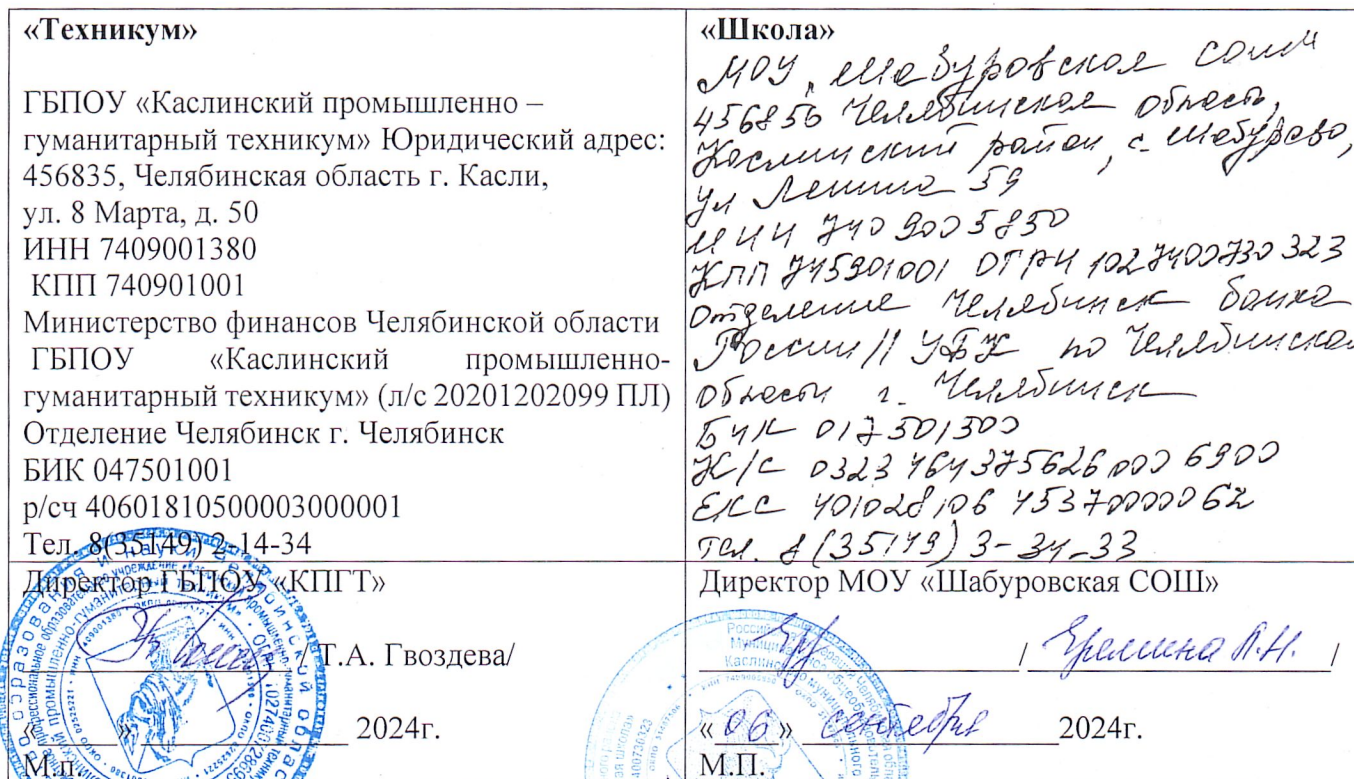 «Техникум»
ГБПОУ «Каслинский промышленно –
гуманитарный техникум» Юридический адрес:
456835, Челябинская область г. Касли,
ул. 8 Марта, д. 50
ИНН 7409001380
КПП 740901001
Министерство финансов Челябинской области
ГБПОУ «Каслинский промышленно-
гуманитарный техникум» (л/с 20201202099 ПЛ)
Отделение Челябинск г. Челябинск
БИК 047501001
р/сч 40601810500003000001
Тел. 8(35149) 2-14-34
«Школа»
МОУ Шабуровская СОШ
456856 Челябинская область,
Каслинский район, с. Шабурово,
ул Ленина 59
ИНН 7409005850
КПП 745901001 ОГРН 1027400730323
Отделение Челябинск банка
России // УФК по Челябинской
области г. Челябинск
БИК 017501500
К/С 03234643756260006900
ЕКС 40102810645370000062
тел. 8 (35149) 3-34-33
Директор ГБПОУ «КПГТ»
/Т.А. Гвоздева/
« » 2024г.
М.п.
Директор МОУ «Шабуровская СОШ»
/ Еремина Л.Н. /
« 06 » сентября 2024г.
М.П.